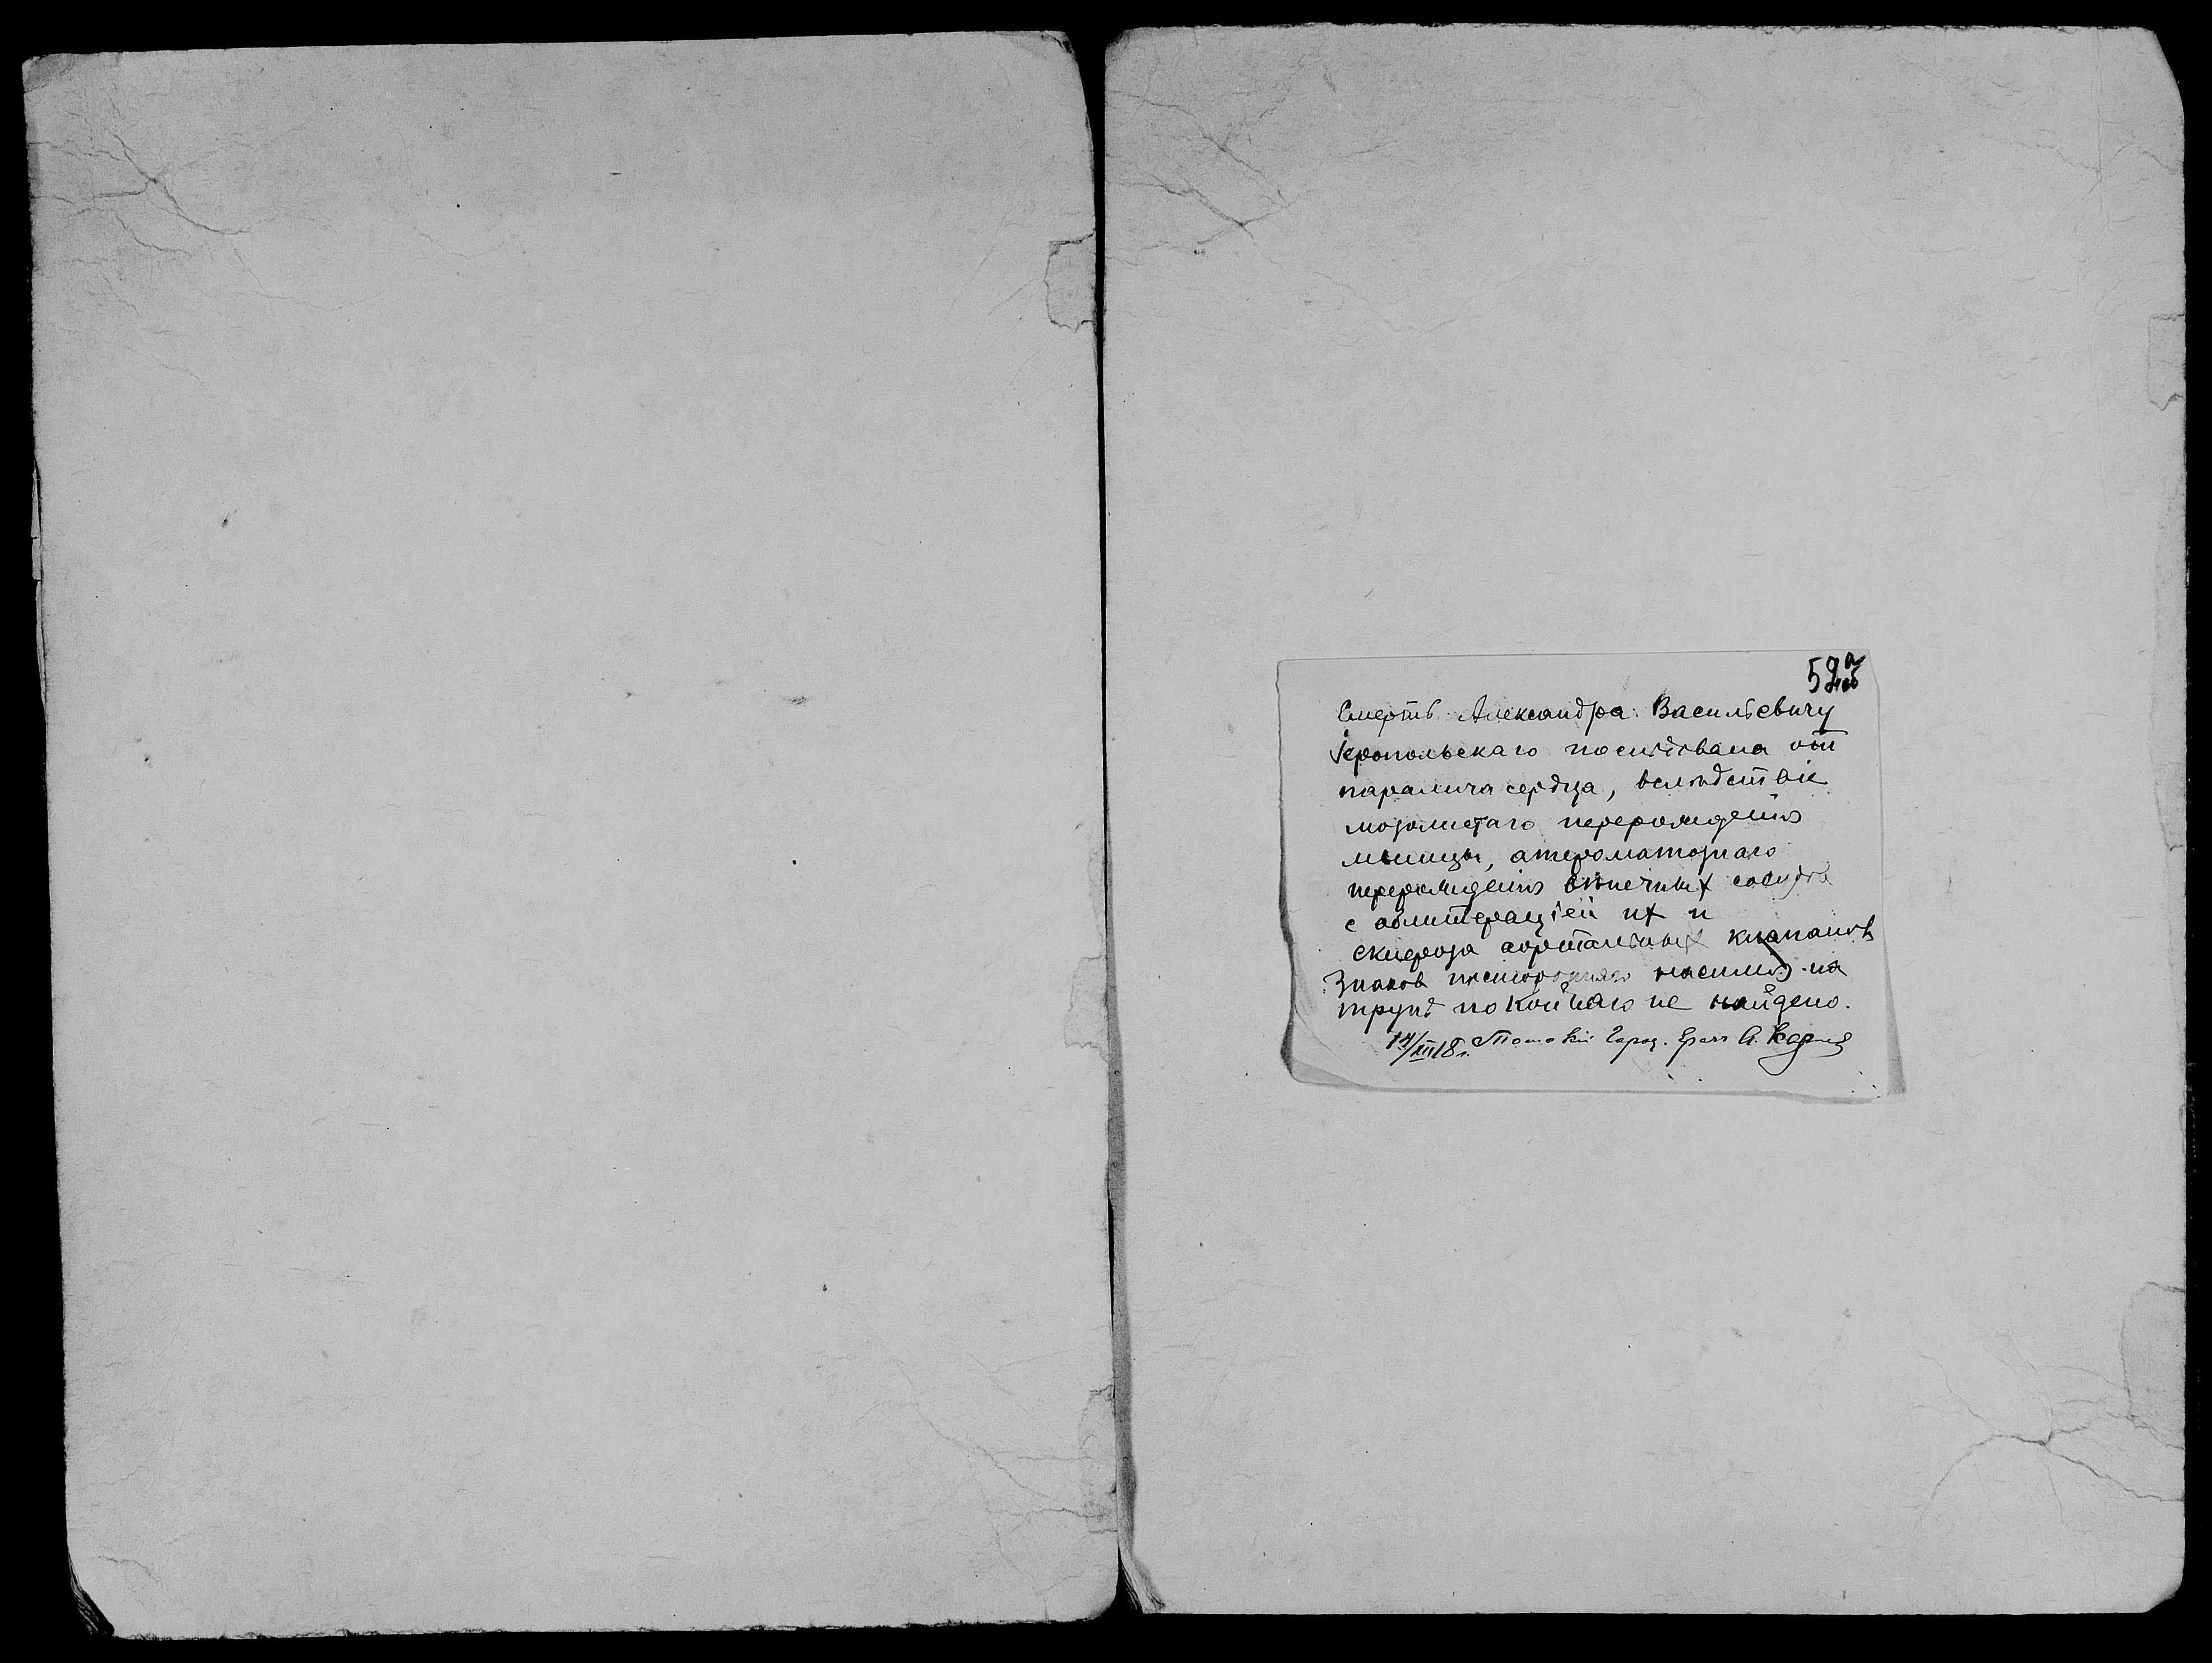 52а
Смерть Александра Васильевичу
Іеропольскаго последовала от
паралича сердца, вследствіе
мозолистаго перерожденія
мышцы, атероматознаго
перерожденія венечных сосудов
с облитераціей их и
склероза аортальных клапанов
Знаков посторонняго насилія на
трупе покойнаго не найдено.
14/XII 18 г. Томскій Город. Врач А.